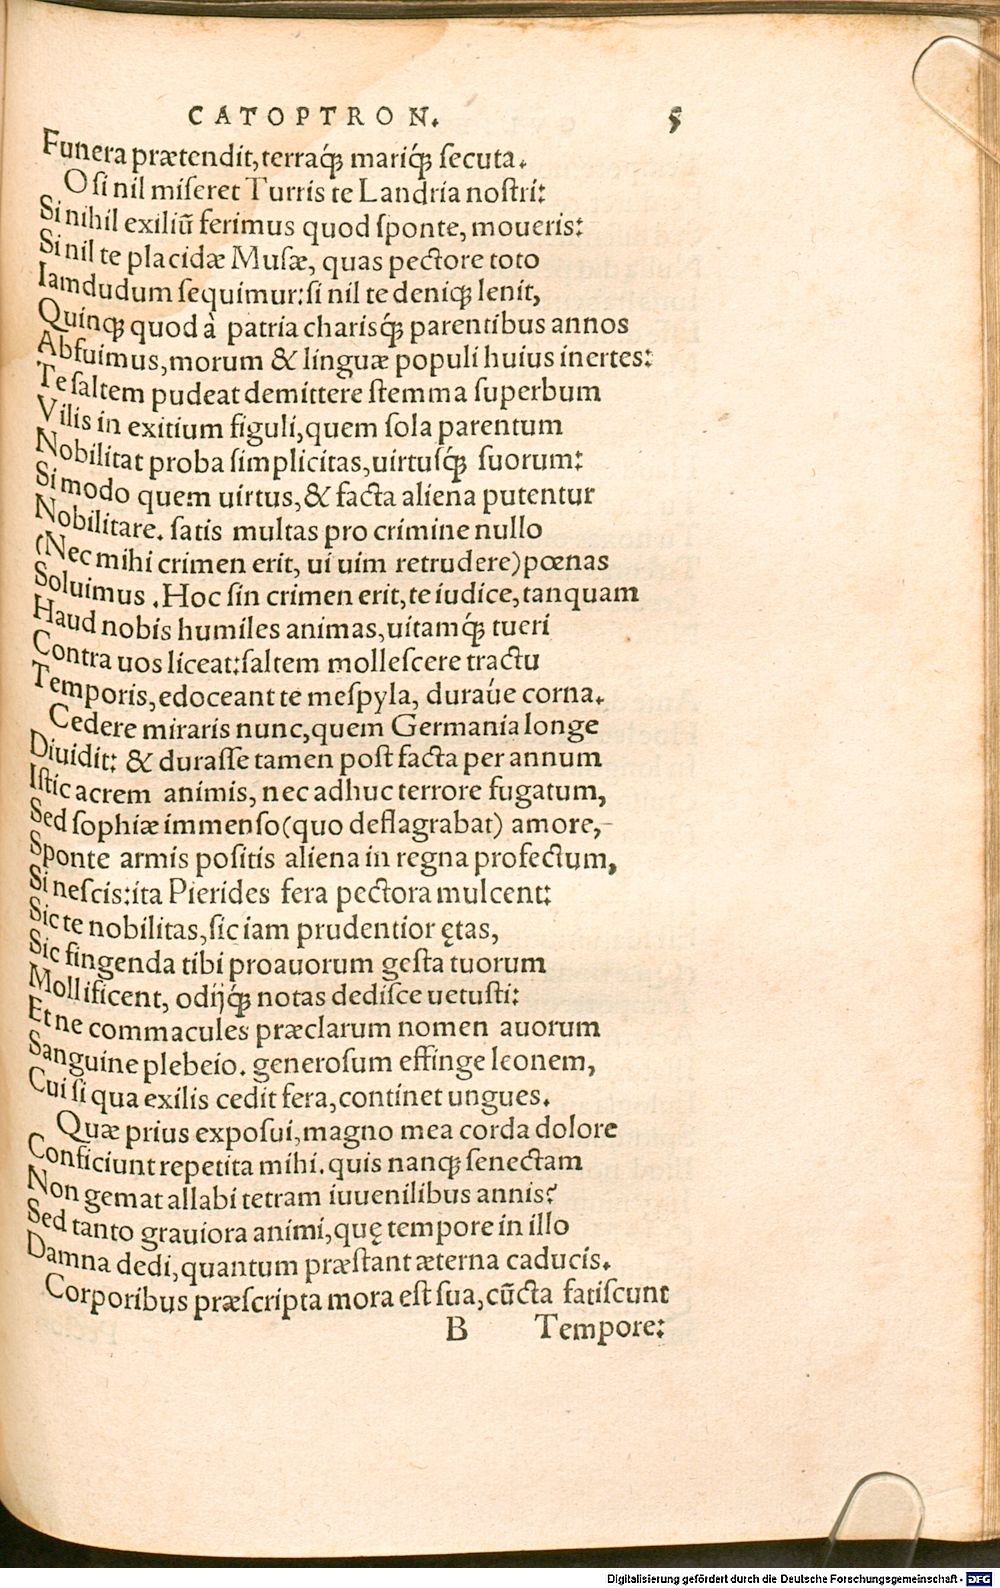 CATOPTRON. 5
Funera prætendit, terraq́; mariq́; secuta.
O si nil miseret Turris te Landria nostri:
Si nihil exiliũ ferimus quod sponte, moueris:
Si nil te placidæ Musæ, quas pectore toto
Iamdudum sequimur: si nil te deniq; lenit,
Quinq; quod à patria charisq́; parentibus annos
Abfuimus, morum & linguæ populi huius inertes:
Te saltem pudeat demittere stemma superbum
Vilis in exitium figuli, quem sola parentum
Nobilitat proba simplicitas, uirtusq́; suorum:
Si modo quem uirtus, & facta aliena putentur
Nobilitare. satis multas pro crimine nullo
(Nec mihi crimen erit, ui uim retrudere) pœnas
Soluimus. Hoc sin crimen erit, te iudice, tanquam
Haud nobis humiles animas, uitamq́; tueri
Contra uos liceat: saltem mollescere tractu
Temporis, edoceant te mespyla, duraúe corna.
Cedere miraris nunc, quem Germania longe
Diuidit: & durasse tamen post facta per annum
Istic acrem animis, nec adhuc terrore fugatum,
Sed sophiæ immenso (quo deflagrabat) amore,
Sponte armis positis aliena in regna profectum,
Si nescis: ita Pierides fera pectora mulcent:
Sic te nobilitas, sic iam prudentior ętas,
Sic fingenda tibi proauorum gesta tuorum
Mollificent, odijq́; notas dedisce uetusti:
Et ne commacules præclarum nomen auorum
Sanguine plebeio. generosum effinge leonem,
Cui si qua exilis cedit fera, continet ungues.
Quæ prius exposui, magno mea corda dolore
Conficiunt repetita mihi. quis nanq; senectam
Non gemat allabi tetram iuuenilibus annis?
Sed tanto grauiora animi, quę tempore in illo
Damna dedi, quantum præstant æterna caducis.
Corporibus præscripta mora est sua, cũcta fatiscunt
B Tempore:
Digitalisierung gefördert durch die Deutsche Forschungsgemeinschaft - DFG